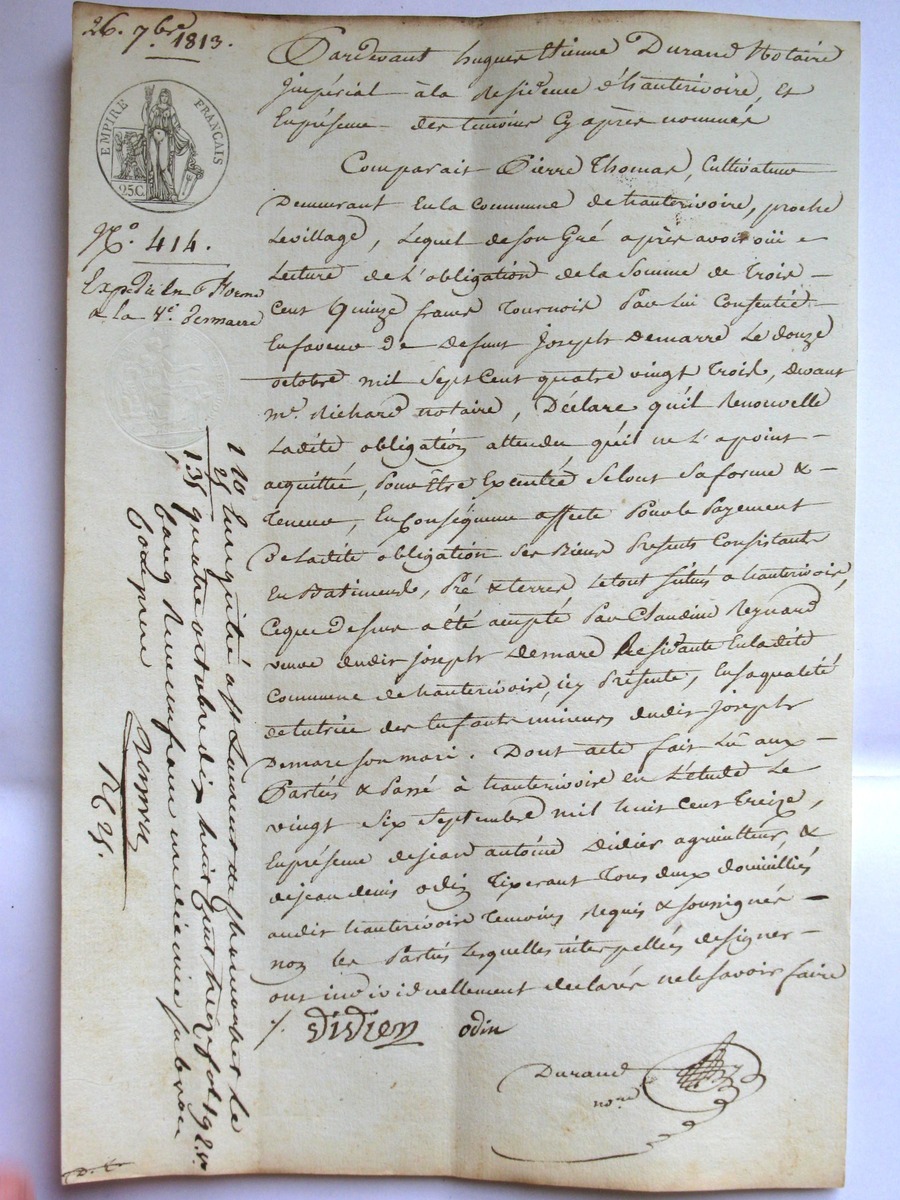 26. 7bre 1813.
EMPIRE FRANÇAIS
25C.
N.o 414.
Expédié le 6
a la Ve demarre
Pardevant hugues Etienne Durand Notaire
Impérial à la Residence d'hauterivoire, et
En présence des temoins Cy après nommés
Comparait Pierre Thomas, Cultivateur
Demeurant En la Commune de hauterivoire, proche
Le village, Lequel de Son Gré après avoir oüi
Lecture de L'obligation de la Somme de Trois
Cent Quinze francs Tournois Par Lui Consentie
En faveur De defunt Joseph Demarre Le douze
octobre mil Sept Cent quatre vingt Trois, devant
me. Richard notaire, Déclare qu'il Renouvelle
Ladite obligation attendu qu'il ne L'a point
acquittée, Pour Être Executée Selont Sa forme &
Teneur, En Conséquence affecte Pour le Payement
De Ladite obligation Ses Biens Presents Consistants
En Batiments, Pré & terres Le tout Situés a hauterivoire,
Ceque Dessus a été accepté Par Claudine Reynard
veuve dudit Joseph Demare Residante En ladite
Commune de hauterivoire, icy Présente, En sa qualité
de tutrice des Enfants mineurs dudit Joseph
Demare Son mari. Dont acte fait Lû aux
Parties & Passé à hauterivoire en L'étude Le
vingt Six Septembre mil huit Cent treize,
En présence de jean antoine Didier agriculteur, &
de jean denis odin Tixerant Tous deux domiciliés
audit hauterivoire Temoins Requis & Soussignés
non les Parties Lesquelles interpellées de signer
ont individuellement declarés ne le savoir faire
/. Didier odin
Durand
nore
1 10 Enregistré à St Laurent de chamousset le
25 quatre octobre dix huit Cent treize fol 192
135
Reçu un franc un decime Subvon
Comprise
R 25.